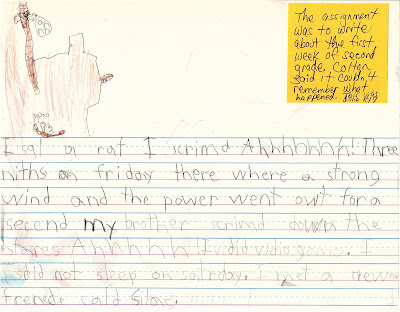 The assignment
was to write
about the first
week of second
grade. Colton
said it couldn't
remember what
happened.
I sal a rat I scrimd Ahhhhhhh! Three
niths on friday there where a strong
wind and the power went owt for a
secend my brother scrimd down the
stares Ahhhhh! I vidid vidio games. I
sold not sleep on satrday. I met a new
frende cald Silas.